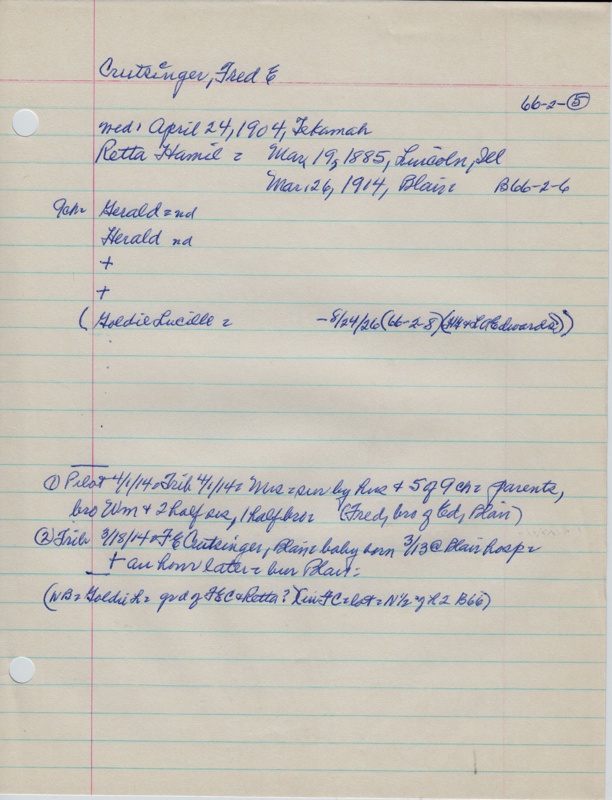 Crutsinger, Fred E
66-2-⑤
med: April 24, 1904, Tekamah
Retta Hamil = Mar, 19, 1885, Lincoln, Ill
Mar. 26, 1914, Blair = B66-2-6
9ch = Gerald = nd
Herald nd
+
+
(Goldie Lucille = - 8/24/26 (66-2-8) (
① Pilot 4/1/14 = Trib 4/1/14 = Mrs = sur by hus + 5 of 9 ch = parents,
bro Wm + 2 half sis, 1 half bro = (Fred, bro of Ed, Blair)
② Trib 3/18/14 = F E Crutsinger, Blair = baby born 3/13 @ Blair hosp =
+ an hour later = bur Blair =
(NB = Goldie L = grd of FEC + Retta?) (in FC = lot = N½ of L2 B66)